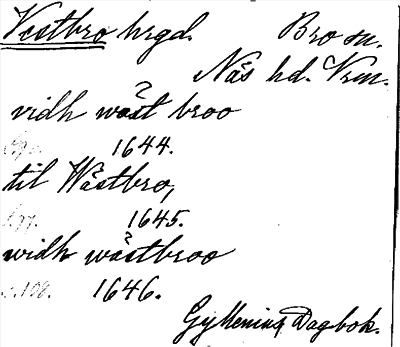 Vestbro hrgd. Bro sn.
Näs hd. Vrm.
vidh wäst broo
1644.
til Wästbro,
s. 97. 1645.
widh wästbroo
s. 108. 1646.
Gyllenius Dagbok.